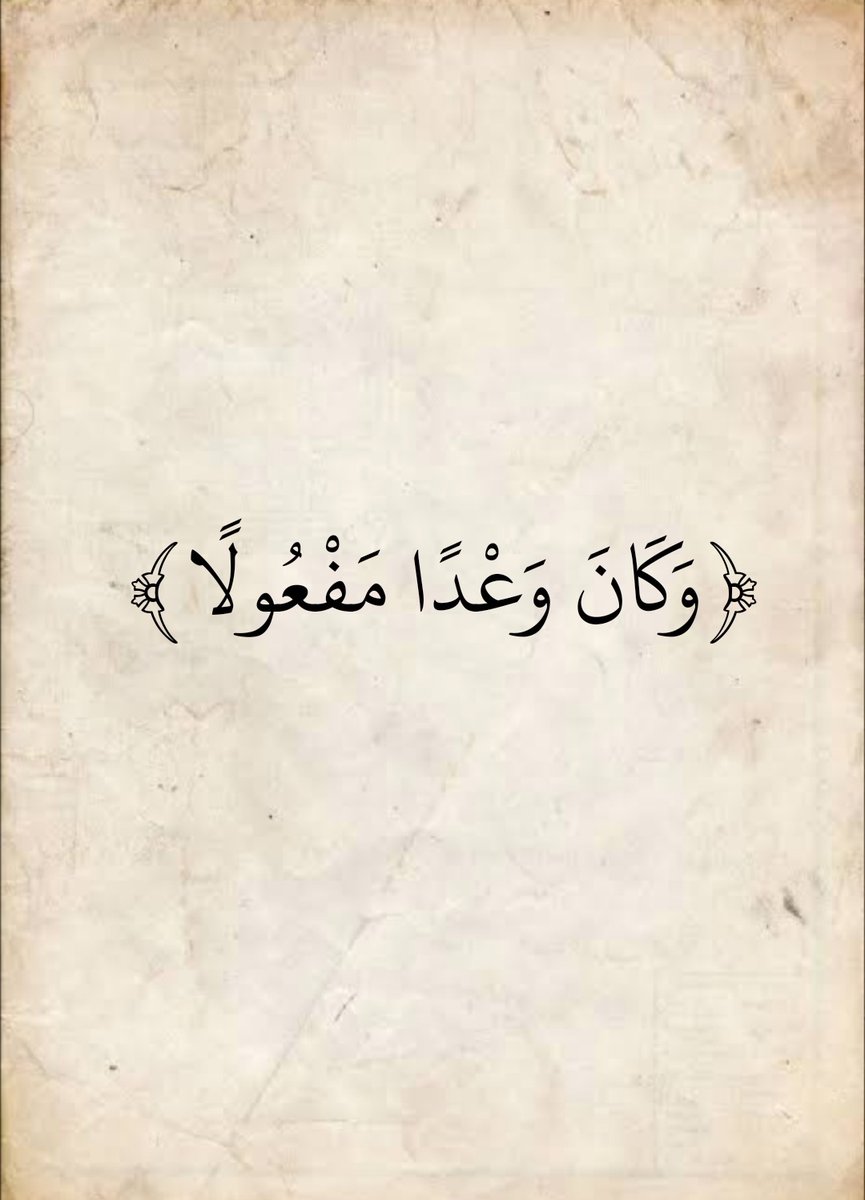 ﴿وَكَانَ وَعْدًا مَفْعُولًا﴾